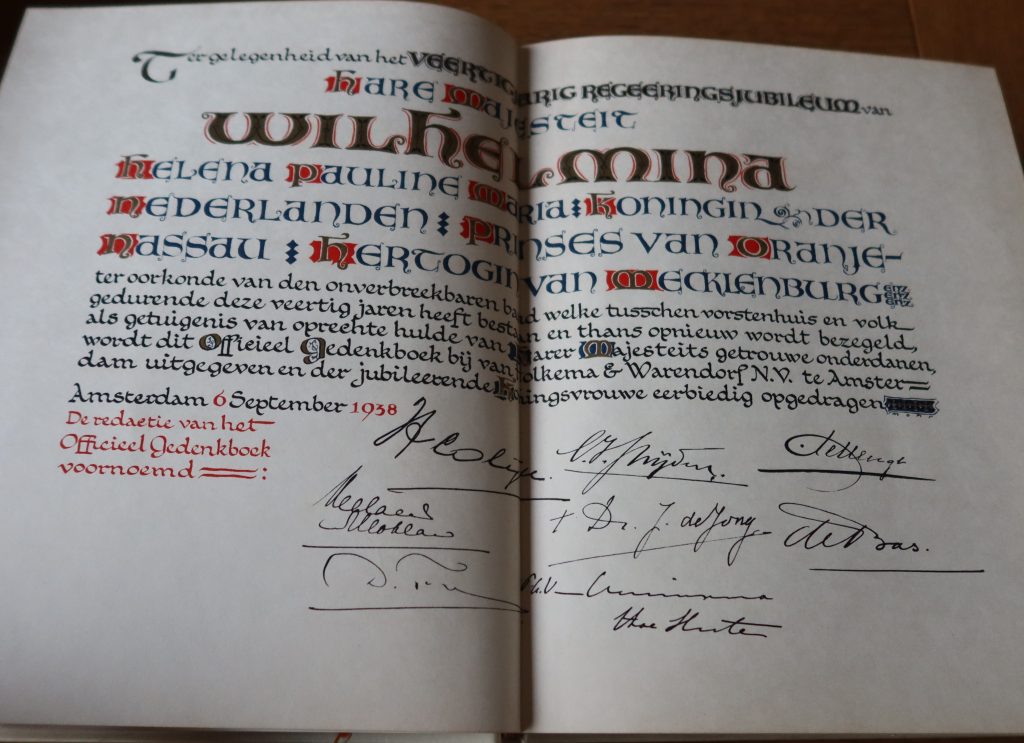 Ter gelegenheid van het VEERTIGJARIG REGEERINGSJUBILEUM van
HARE MAJESTEIT
WILHELMINA
HELENA PAULINE MARIA: KONINGIN DER
NEDERLANDEN: PRINSES VAN ORANJE-
NASSAU: HERTOGIN VAN MECKLENBURG ENZ ENZ ENZ
ter oorkonde van den onverbreekbaren band welke tusschen vorstenhuis en volk
gedurende deze veertig jaren heeft bestaan en thans opnieuw wordt bezegeld,
als getuigenis van oprechte hulde van Harer Majesteits getrouwe onderdanen,
wordt dit Officieel Gedenkboek bij van Holkema & Warendorf N.V. te Amster=
dam uitgegeven en der jubileerende Koningsvrouwe eerbiedig opgedragen
Amsterdam 6 September 1938
De redactie van het
Officieel Gedenkboek
voornoemd :
H Colijn.
+ Dr. J. de Jong